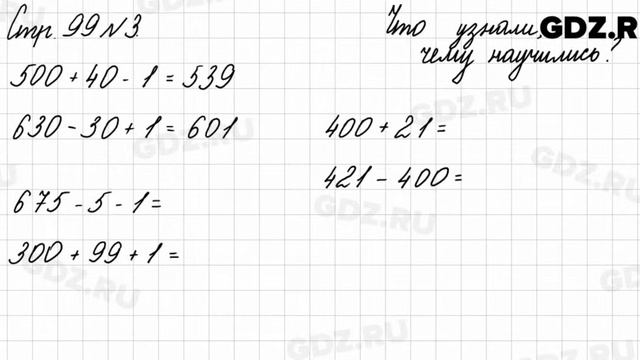 Стр. 99 №3
Что узнали,
чему научились?
GDZ.R
500 + 40 - 1 = 539
630 - 30 + 1 = 601
400 + 21 =
421 - 400 =
675 - 5 - 1 =
300 + 99 + 1 =
GDZ.RU
GDZ.RU
GDZ.RU
GDZ.RU
GDZ.RU
GDZ.RU